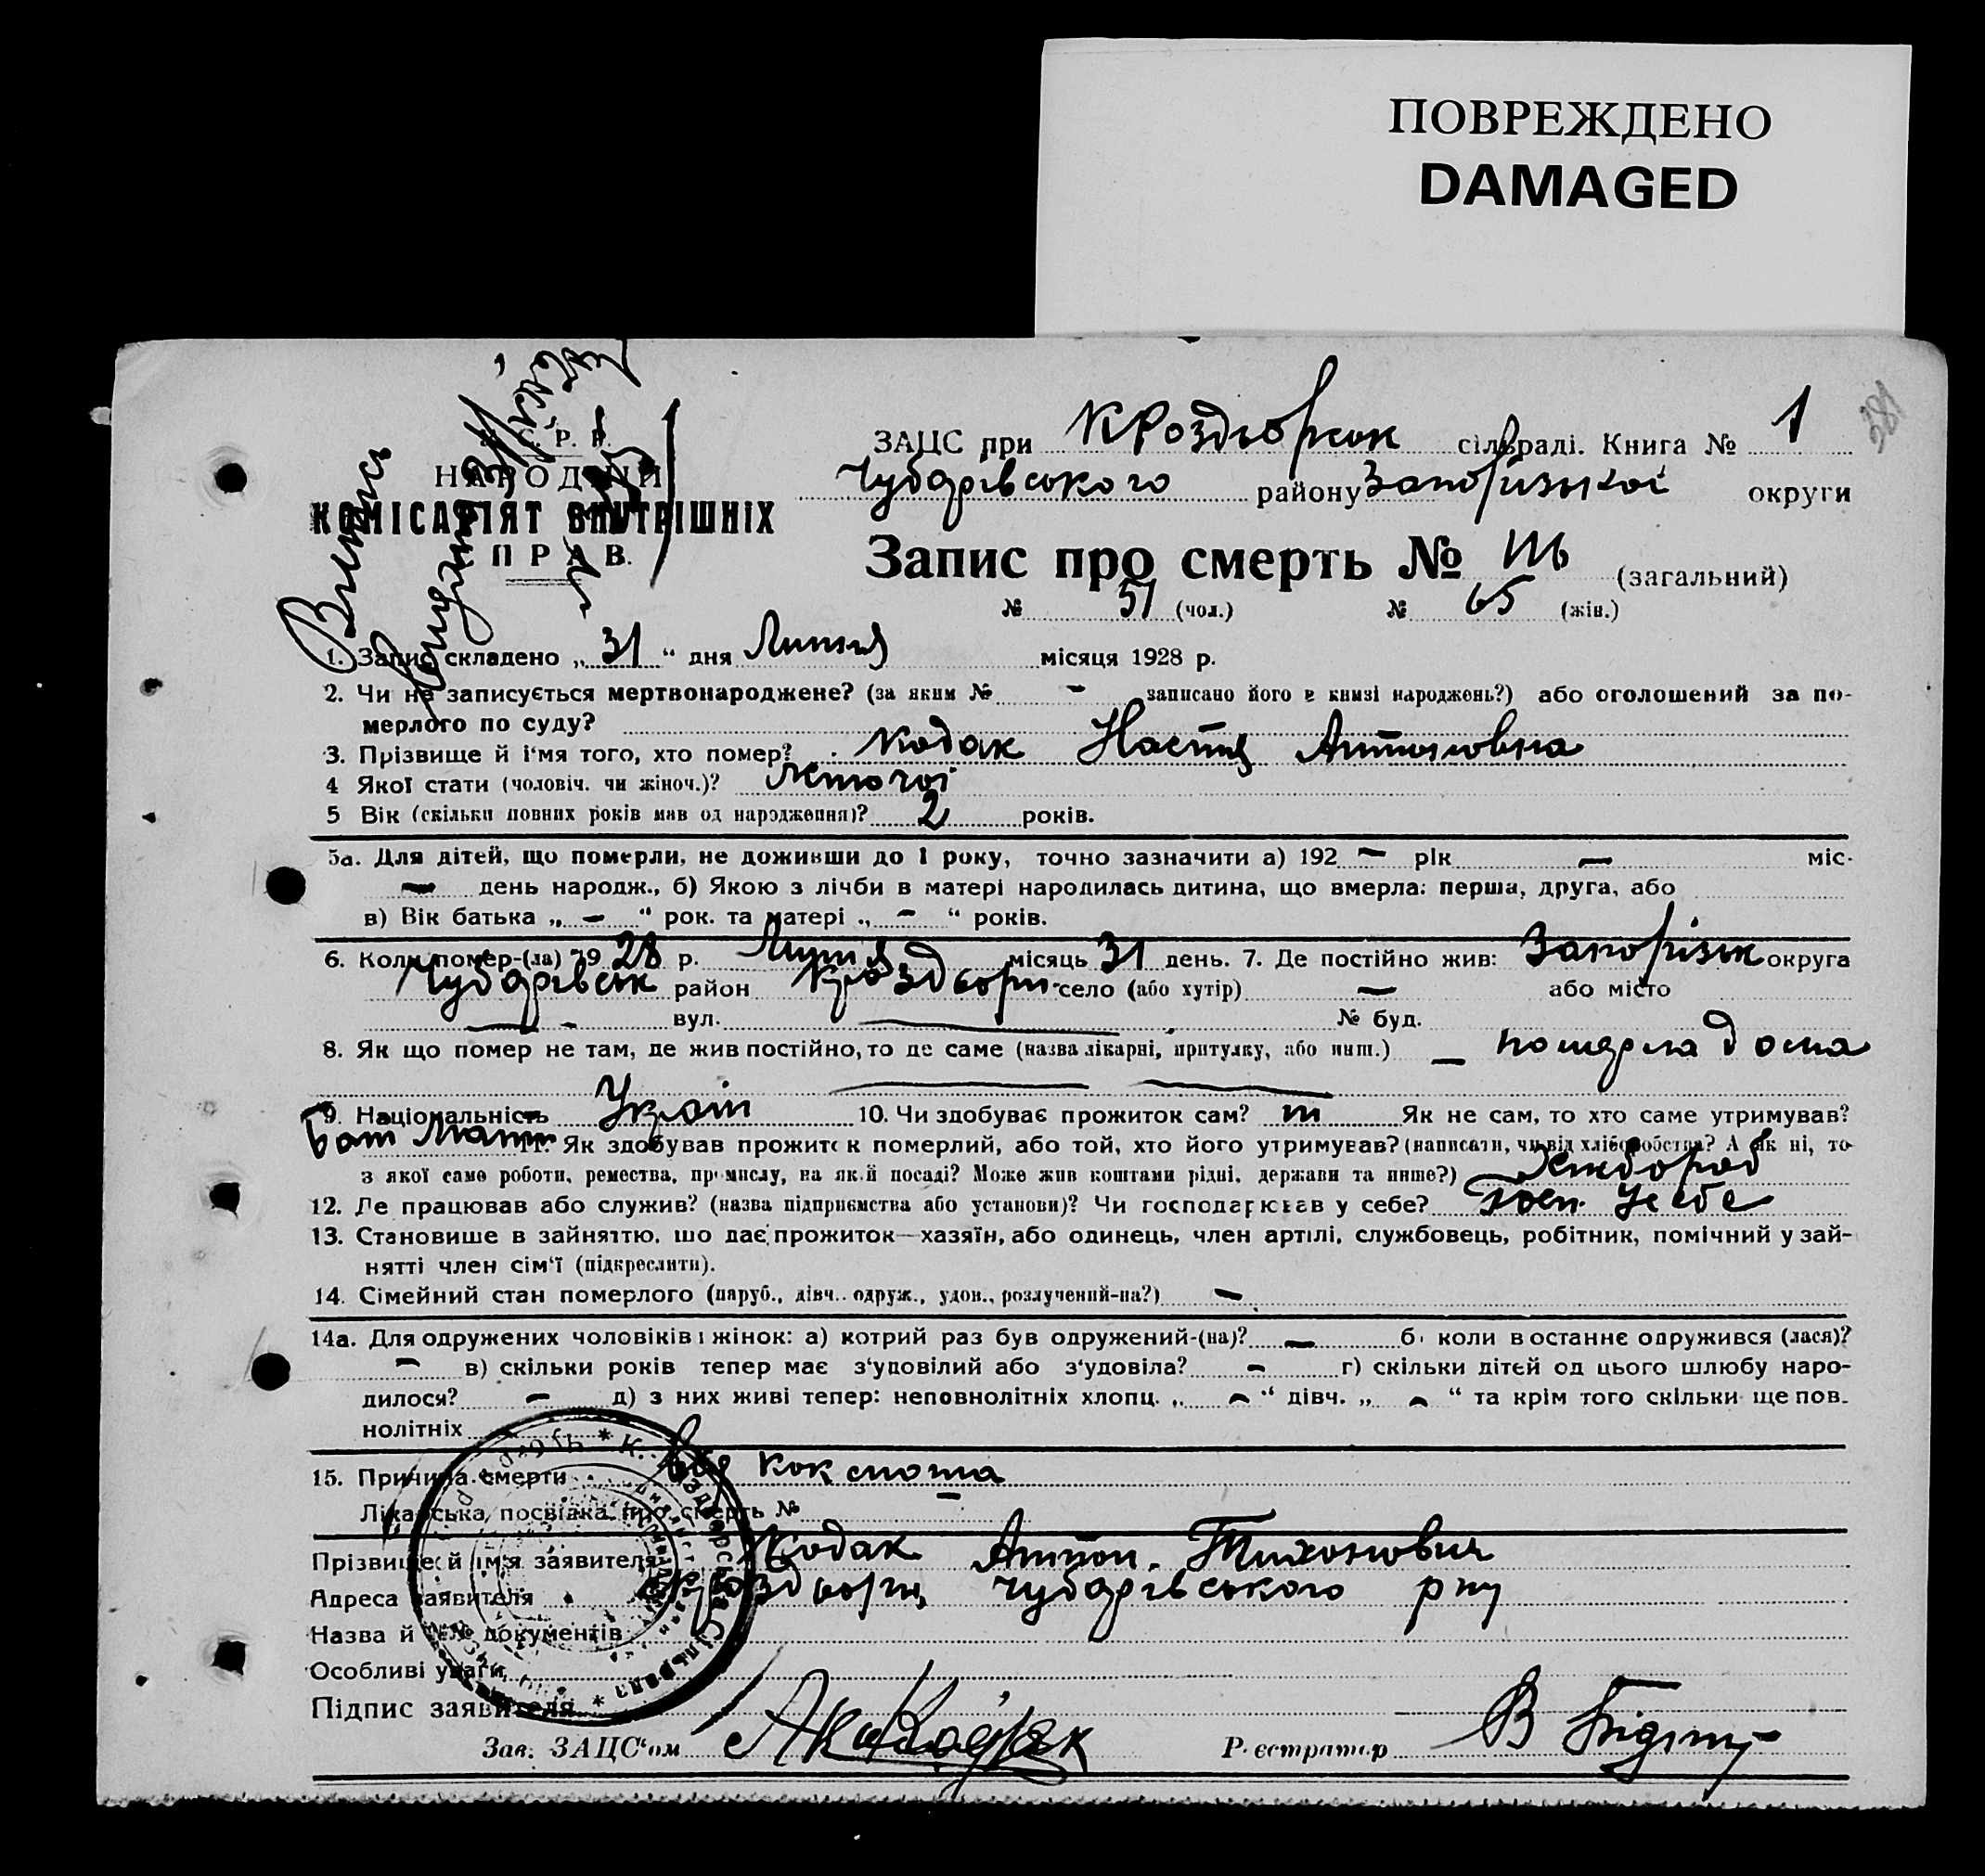 ПОВРЕЖДЕНО
DAMAGED
381
С. Р. Р.
НАРОДНИЙ
КОМІСАРІЯТ ВНУТРІШНІХ
ПРАВ.
Випись
ЗАЦС при К Роздорськ сільраді. Книга № 1
Чубарівського району Запорізької округи
Запис про смерть № 116 (загальний)
№ 51 (чол.) № 65 (жін.)
1. Запис складено „ 31 “ дня Липня місяця 1928 р.
2. Чи не записується мертвонароджене? (за яким № - записано його в книзі народжень?) або оголошений за по-
мерлого по суду?
3. Прізвище й і'мя того, хто помер? Кодак Настя Антоновна
4 Якої стати (чоловіч. чи жіноч.)? жіночої
5 Вік (скільки повних років мав од народження)? 2 років.
5а. Для дітей, що померли, не доживши до 1 року, точно зазначити а) 192 - рік - міс.
- день народж., б) Якою з лічби в матері народилась дитина, що вмерла: перша, друга, або
в) Вік батька „ - “ рок. та матері „ - “ років.
6. Коли помер-(ла) 19 28 р. Липня місяць 31 день. 7. Де постійно жив: Запорізьк округа
Чубарівськ район К роздори село (або хутір) - або місто
- вул. - № буд.
8. Як що помер не там, де жив постійно, то де саме (назва лікарні, притулку, або инш.) - померла дома
9. Національність Україн 10. Чи здобуває прожиток сам? ні Як не сам, то хто саме утримував?
Бат Мати 11. Як здобував прожиток померлий, або той, хто його утримував? (написати, чи від хліборобства? А як ні, то
з якої саме роботи, ремества, промислу, на якій посаді? Може жив коштами рідні, держави та инше?) Хлібороб
12. Де працював або служив? (назва підприємства або установи)? Чи господарював у себе? Госп. У себе
13. Становище в зайняттю, що дає прожиток—хазяїн, або одинець, член артілі, службовець, робітник, помічний у зай-
нятті член сім'ї (підкреслити).
14. Сімейний стан померлого (паруб., дівч.. одруж., удов., розлучений-на?) -
14а. Для одружених чоловіків і жінок: а) котрий раз був одружений-(на)? - б) коли в останнє одружився (лася)?
- в) скільки років тепер має з'удовілий або з'удовіла? - г) скільки дітей од цього шлюбу наро-
дилося? - д) з них живі тепер: неповнолітніх хлопц. „ - “ дівч. „ - “ та крім того скільки ще пов.
нолітніх
15. Причина смерти від коклюша
Лікарська посвідка про смерть № -
Прізвище й ім'я заявителя Кодак Антон Тихонович
Адреса заявителя К роздори Чубарівського рну
Назва й №№ документів
Особливі уваги
Підпис заявителя
Зав. ЗАЦС'ом
Реєстратор В